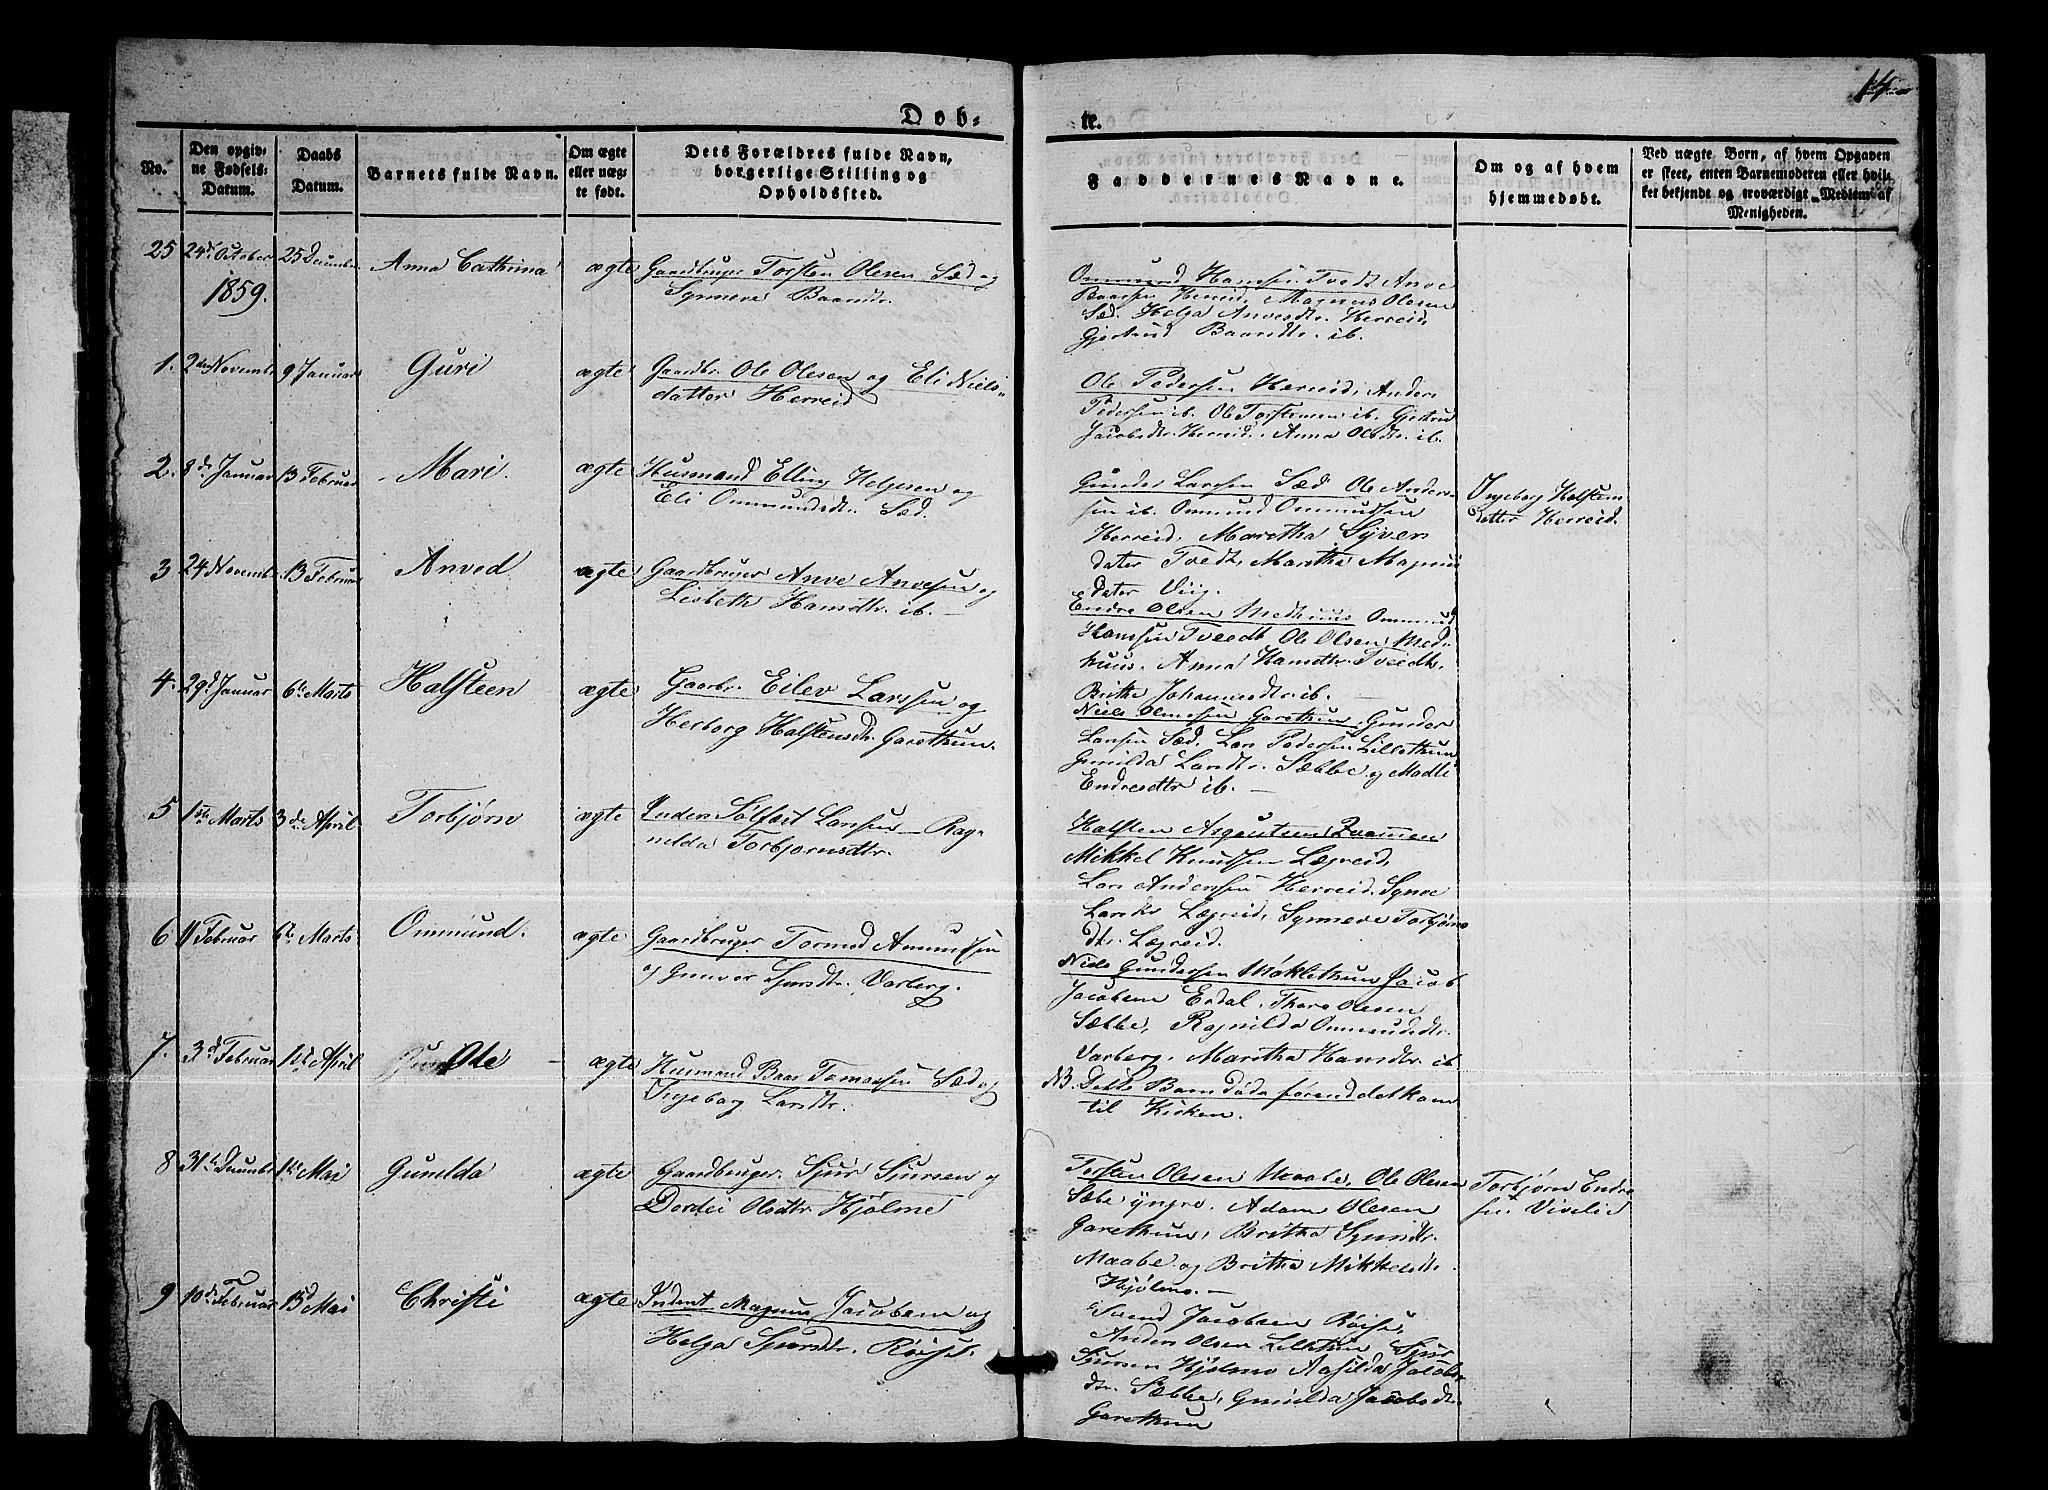 14
Døb-
te.
No.
Den opgiv-
ne Fødsels-
Datum.
Daabs
Datum.
Barnets fulde Navn.
Om ægte
eller uæg-
te født.
Dets Forældres fulde Navn,
borgerlige Stilling og
Opholdssted.
Faddernes Navne.
Om og af hvem
hjemmedøbt.
Ved uægte Børn, af hvem Opgaven
er skeet, enten Barnemoderen eller hvil-
ket bekjendt og troværdigt Medlem af
Menigheden.
25 24de October 25 Decembr Anna Cathrina ægte Gaardbruger Torsten Olesen Sæd og
1859. Synneve Baardsdtr.
Ommund Hansen Tvedt Anve
Baarsen Herreid, Magnus Olesen
Sæd. Helga Anvesdtr. Herreid,
Gjertrud Baardsdtr. ib.
1. 2den Novembr 9 Januar Guri ægte Gaardbr. Ole Olesen og Eli Niels-
datter Herreid
Ole Pedersen Herreid, Anders
Pedersen ib. Ole Torstensen ib. Gjertrud
Jacobsdtr. Herreid. Anna Olsdtr. ib.
2. 8de Januar 13 Februar Mari ægte Husmand Elling Helgesen og
Eli Ommundsdtr. Sæd.
Gunder Larssen Sæd Ole Anders-
sen ib. Ommund Ommundsen
Herreid, Maretha Syvers
dater Tvedt, Martha Magnus
dater Viig.
Ingeborg Halstens
datter Herreid.
3 24 Novembr 13 Februar Anved ægte Gaardbruger Anve Anvesen og
Lisbeth Hansdtr. ib.
Endre Olsen Medhuus Ommund
Hanssen Tveedt Ole Olsen Med-
huus. Anna Hansdtr. Tveedt.
Britha Johannesdtr. ib.
4. 29d Januar 6te Marts Halsteen ægte Gaarbr. Eilev Larssen og
Herborg Halstensdtr. Garethun.
Niels Olmosen Garethun, Gunder
Larsen Sæd. Lars Pedersen Lillethun
Gunilda Larsdtr. Sæbbe og Madli
Endresdtr ib.
5 1ste Marts 3de April Torbjørn ægte Inders. Sølfæst Larssen Rag-
nilda Torbjørnsdtr.
Halsten Aagesteen Qvamen
Mikkel Knudsen Lægreid,
Lars Andersen Herreid. Synve
Larsdtr Lægreid, Synneve Torbjørns
dtr. Lægreid.
6 11 Februar 6te Marts Ommund. ægte Gaardbruger. Tormod Amundsen
og Gunvor Sjursdtr. Varberg.
Niels Gundersen Møklethun Jacob
Jacobsen Erdal. Thore Olesen
Sæbbe, Ragnilda Ommundsdtr.
Varberg. Maritha Hansdtr. ib.
7. 3d Februar 1ste April Ole ægte Husmand Baar Tomassen Sæd og
Ingeborg Larsdtr.
NB. Dette Barn døde førend det kom
til Kirken.
8 31te Decembr 1te Mai Gunilda ægte Gaardbruger. Sjur Sjursen og
Dordei Olsdtr. Hjølme
Torsten Olesen Maabe, Ole Olesen
Sæbe yngre. Adam Olesen
Garethun, Britha Sjursdtr.
Maabe og Britha Mikkelsdtr.
Hjølmo.
Torbjørn Endre
sen Vivelid
9 10de Februar 15d Mai Christi ægte Inderst Magnus Jacobsen og
Helga Sjursdtr. Røisel.
Svend Jacobsen Røise,
Anders Olsen Lillethun Sjur
Sjursen Hjølmo Aasilda Jacobs
dtr. Sæbbe, Gunilda Jacobsdtr.
Garethun